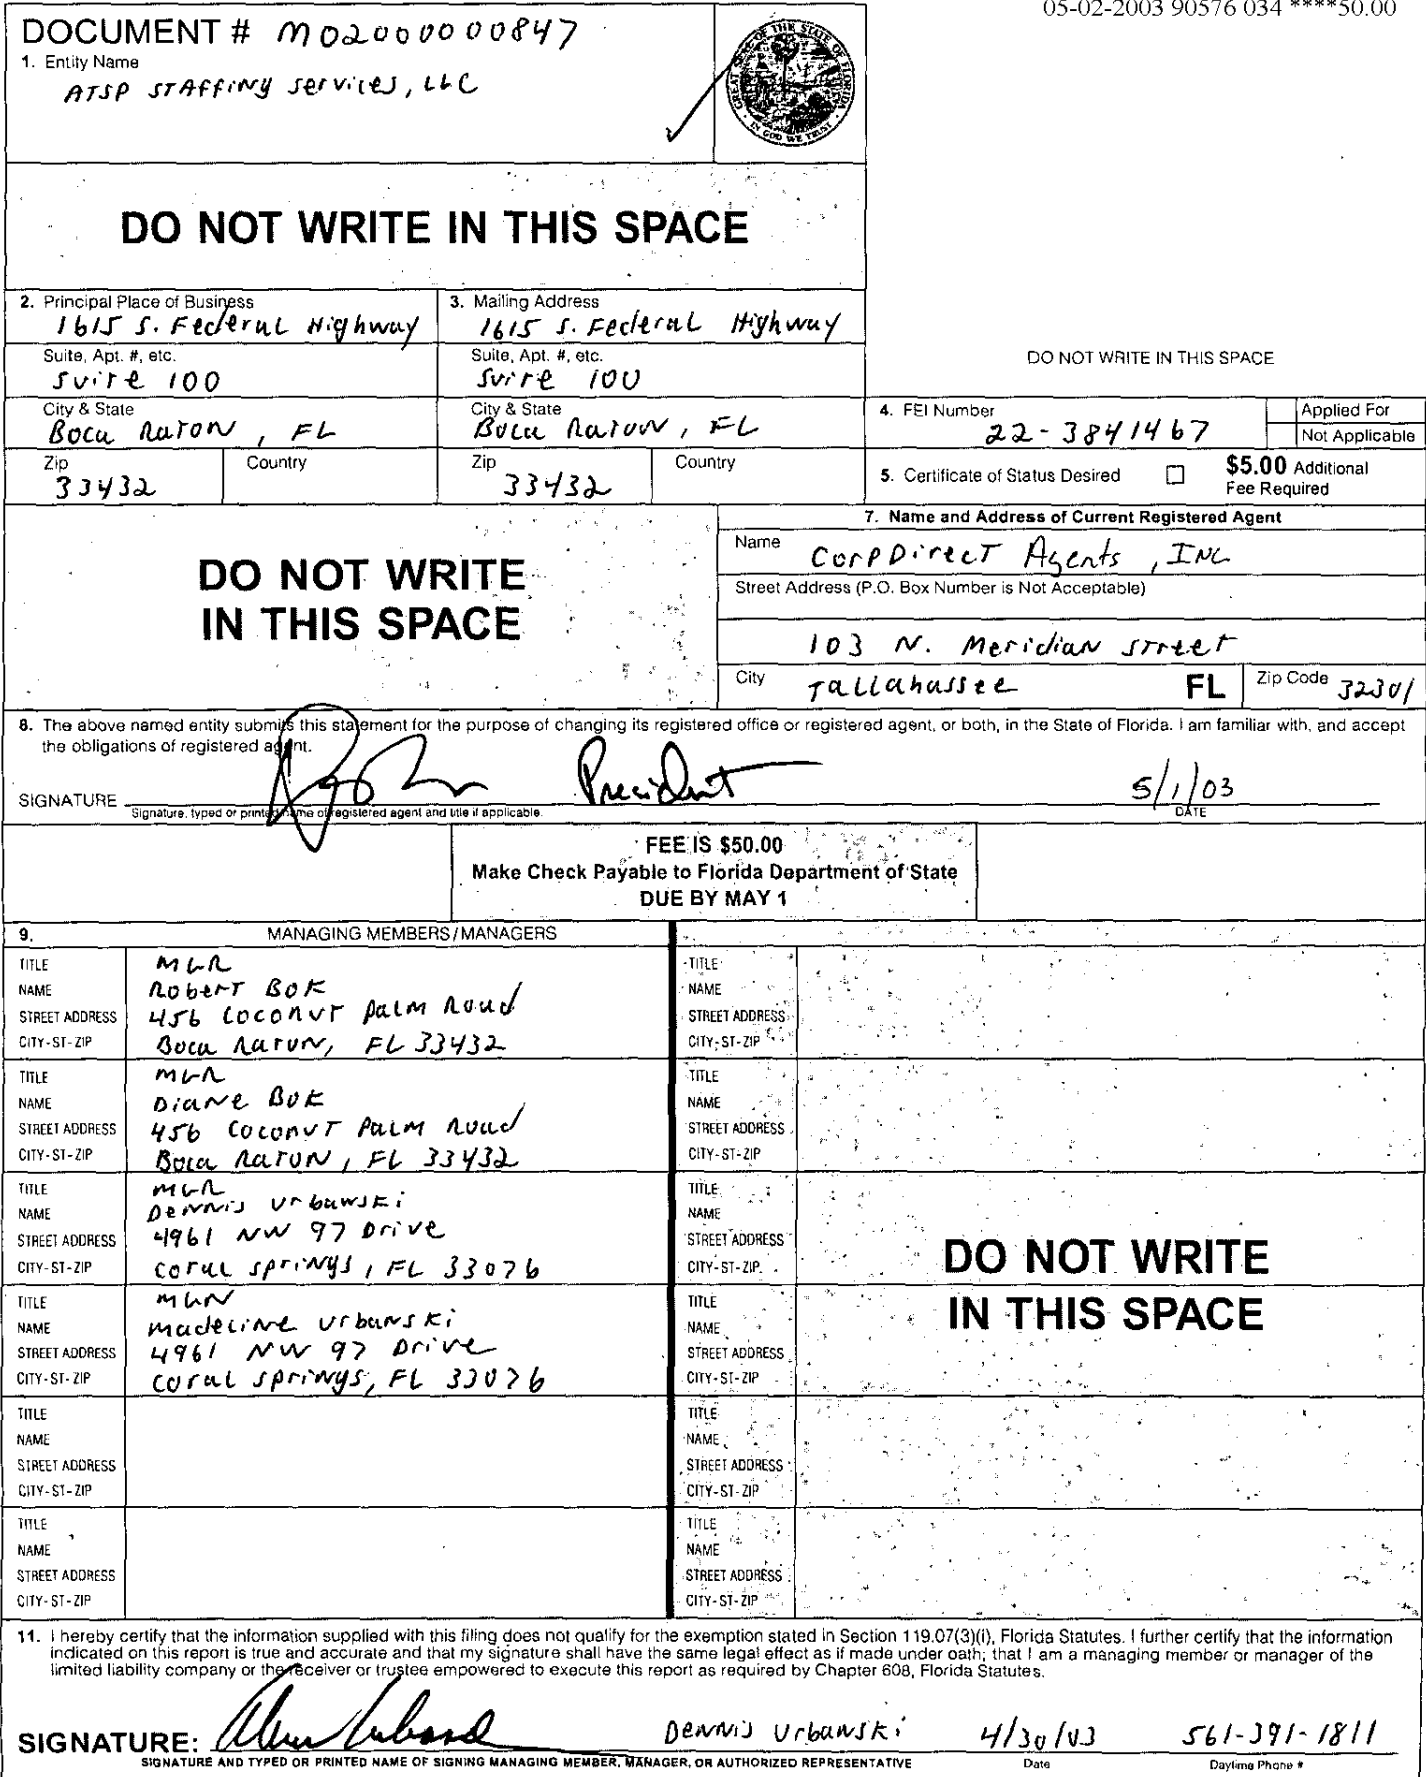 05-02-2003 90576 034 ****50.00
DOCUMENT # M02000000847
1. Entity Name
ATSP Staffing Services, LLC
GREAT SEAL OF THE STATE OF FLORIDA
IN GOD WE TRUST
DO NOT WRITE IN THIS SPACE
2. Principal Place of Business
1615 S. Federal Highway
3. Mailing Address
1615 S. Federal Highway
Suite, Apt. #, etc.
Suite 100
Suite, Apt. #, etc.
Suite 100
DO NOT WRITE IN THIS SPACE
City & State
Boca Raton, FL
City & State
Boca Raton, FL
4. FEI Number
22-3841467
Applied For
Not Applicable
Zip
33432
Country
Zip
33432
Country
5. Certificate of Status Desired ☐ $5.00 Additional
Fee Required
DO NOT WRITE
IN THIS SPACE
7. Name and Address of Current Registered Agent
Name CorpDirect Agents, INC
Street Address (P.O. Box Number is Not Acceptable)
103 N. Meridian Street
City Tallahassee FL Zip Code 32301
8. The above named entity submits this statement for the purpose of changing its registered office or registered agent, or both, in the State of Florida. I am familiar with, and accept
the obligations of registered agent.
SIGNATURE President 5/1/03
Signature, typed or printed name of registered agent and title if applicable. DATE
FEE IS $50.00
Make Check Payable to Florida Department of State
DUE BY MAY 1
9. MANAGING MEMBERS/MANAGERS
TITLE MGR
NAME Robert Bok
STREET ADDRESS 456 Coconut Palm Road
CITY-ST-ZIP Boca Raton, FL 33432
TITLE
NAME
STREET ADDRESS
CITY-ST-ZIP
TITLE MGR
NAME Diane Bok
STREET ADDRESS 456 Coconut Palm Road
CITY-ST-ZIP Boca Raton, FL 33432
TITLE
NAME
STREET ADDRESS
CITY-ST-ZIP
TITLE MGR
NAME Dennis Urbanski
STREET ADDRESS 4961 NW 97 Drive
CITY-ST-ZIP Coral Springs, FL 33076
TITLE
NAME
STREET ADDRESS
CITY-ST-ZIP
TITLE MGR
NAME Madeline Urbanski
STREET ADDRESS 4961 NW 97 Drive
CITY-ST-ZIP Coral Springs, FL 33076
TITLE
NAME
STREET ADDRESS
CITY-ST-ZIP
DO NOT WRITE
IN THIS SPACE
TITLE
NAME
STREET ADDRESS
CITY-ST-ZIP
TITLE
NAME
STREET ADDRESS
CITY-ST-ZIP
TITLE
NAME
STREET ADDRESS
CITY-ST-ZIP
TITLE
NAME
STREET ADDRESS
CITY-ST-ZIP
11. I hereby certify that the information supplied with this filing does not qualify for the exemption stated in Section 119.07(3)(i), Florida Statutes. I further certify that the information
indicated on this report is true and accurate and that my signature shall have the same legal effect as if made under oath; that I am a managing member or manager of the
limited liability company or the receiver or trustee empowered to execute this report as required by Chapter 608, Florida Statutes.
SIGNATURE: Dennis Urbanski 4/30/03 561-391-1811
SIGNATURE AND TYPED OR PRINTED NAME OF SIGNING MANAGING MEMBER, MANAGER, OR AUTHORIZED REPRESENTATIVE Date Daytime Phone #